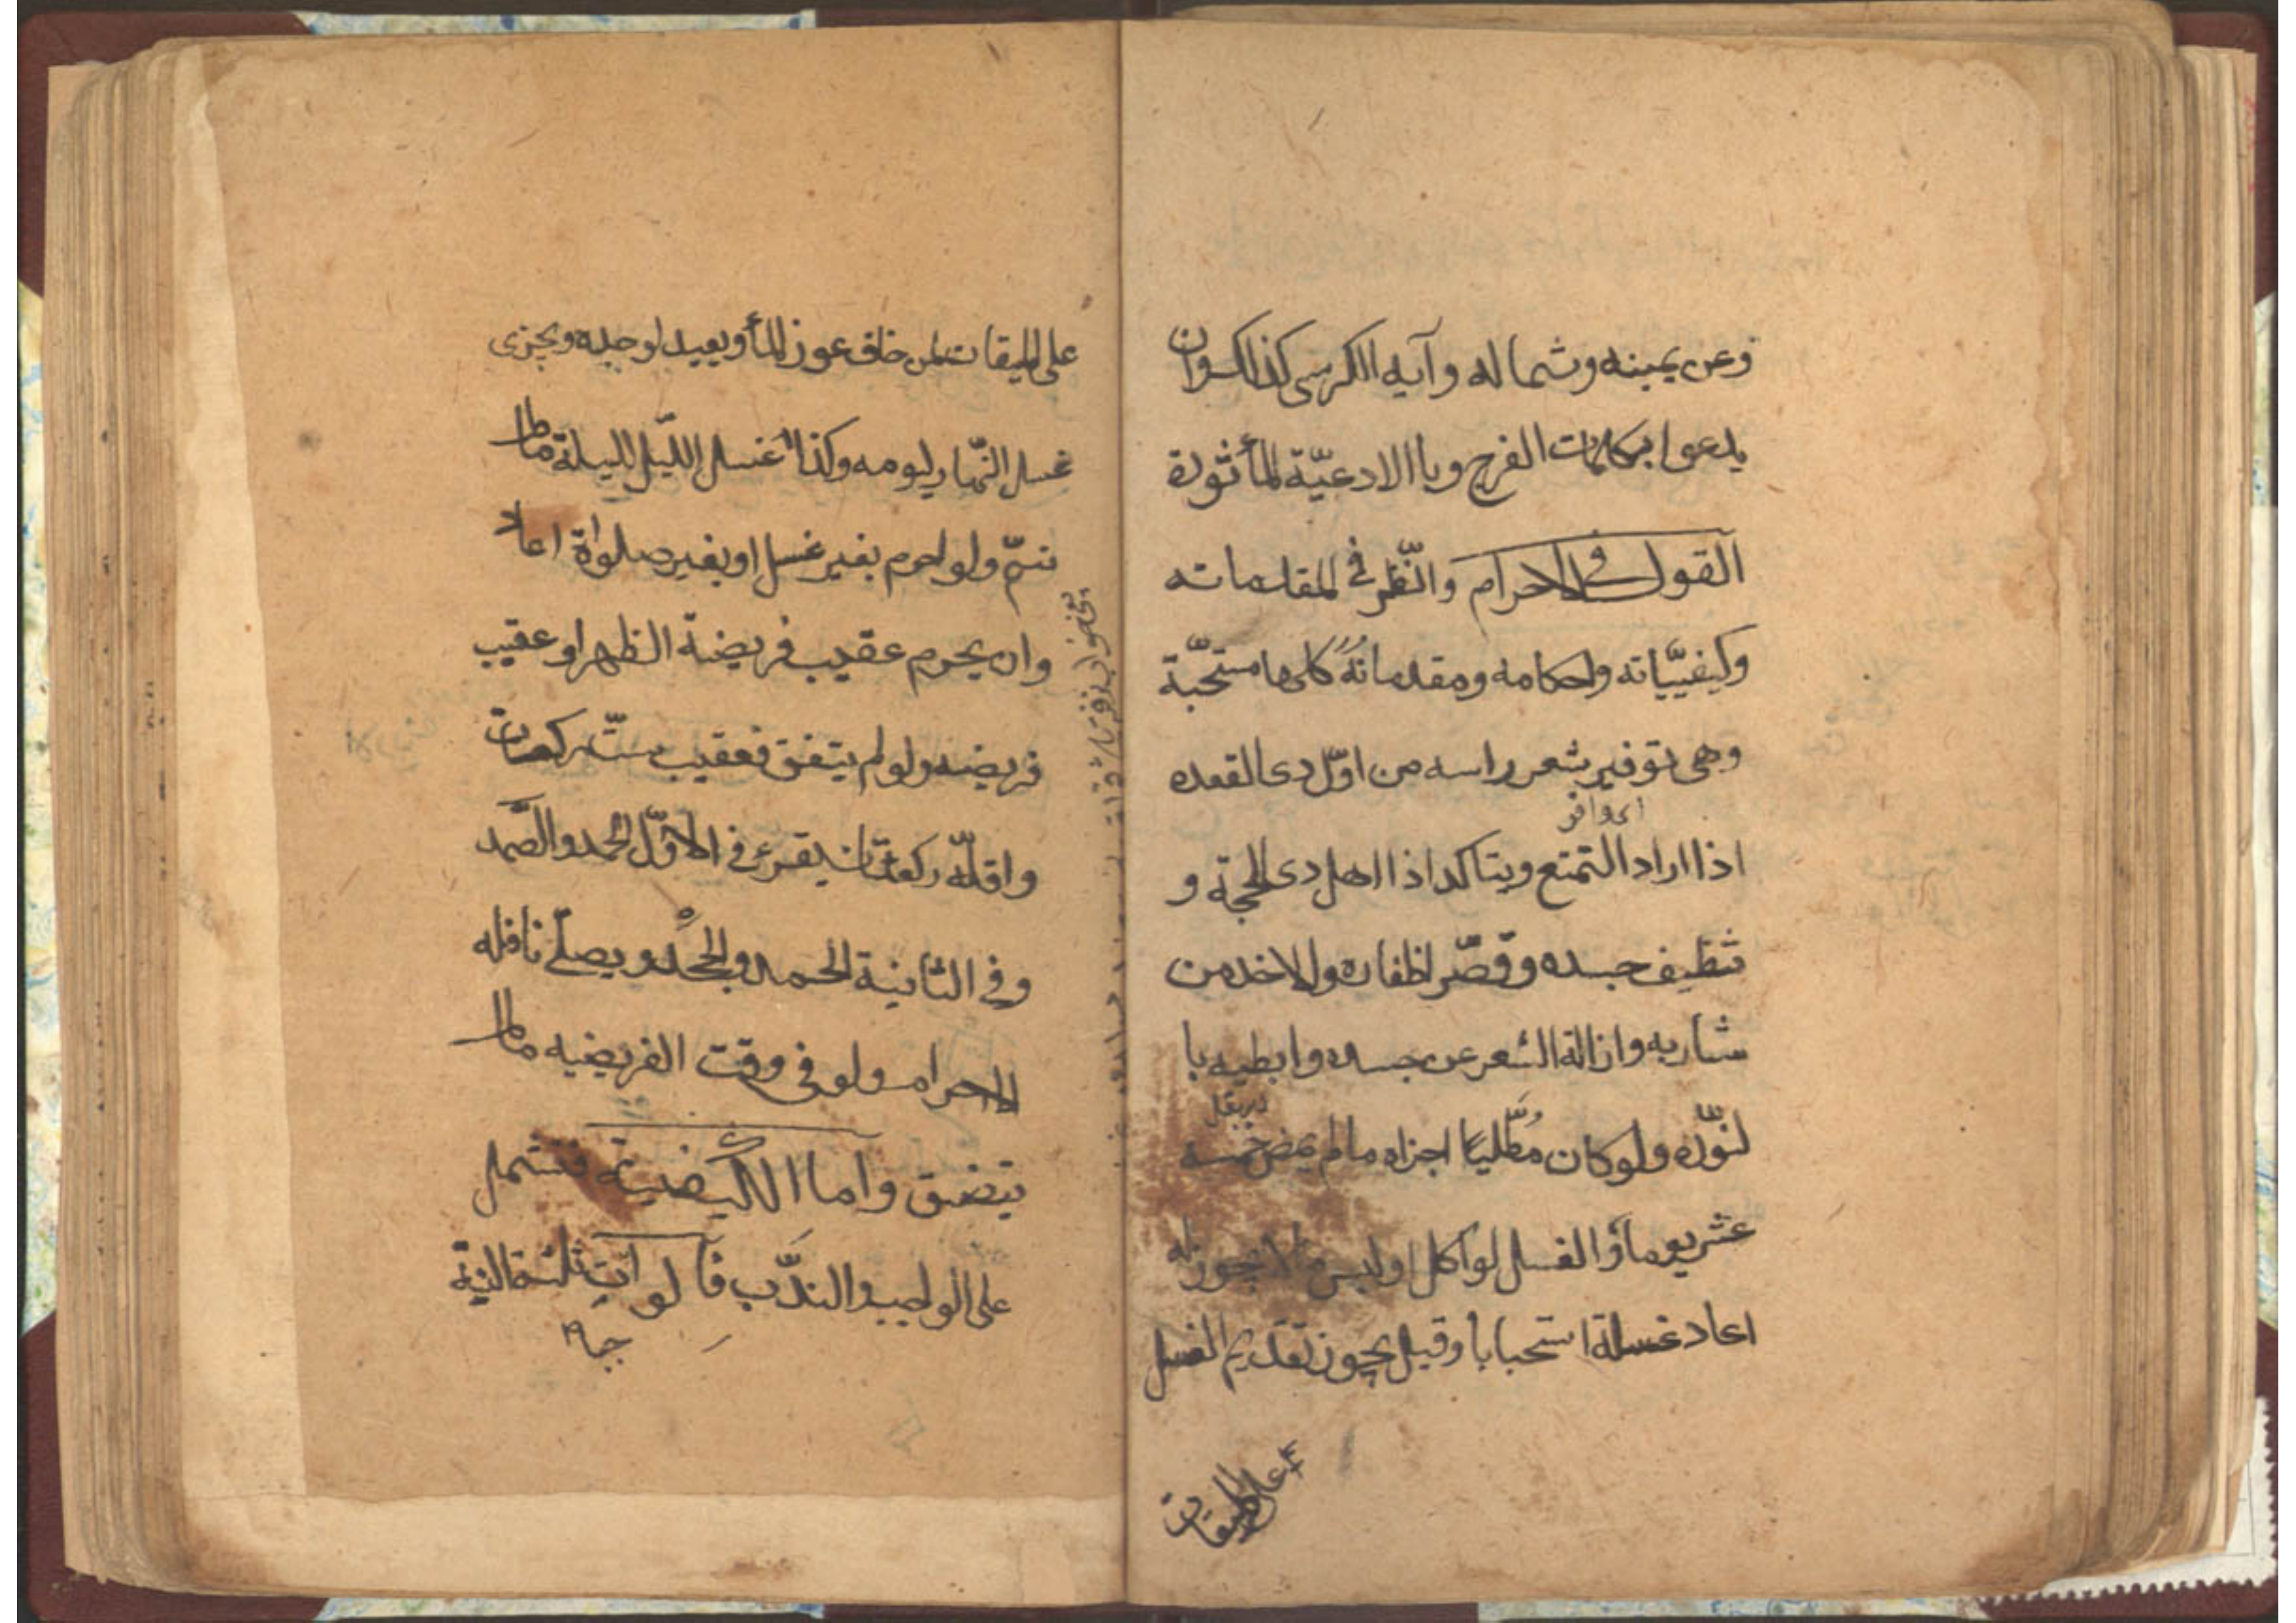 وعن يمينه وشماله وآيه الكرسى كذلك وان
يدعوا بكلمات الفرج وباالادعيّة المأثورة
القول فى الاحرام والنّظر فى المقدماته
وكيفيّياته واحكامه ومقدماته كلها مستحّبة
وهى توفير شعر راسه من اوّل دى القعده
اى وافر
اذا اراد التمتع ويتاكد اذا اهل دى الحجّة و
تنظيف جسده وقصّ اظفاره والاخذ من
شاربه وازالة الشعر عن جسده وابطيه با
لنّوره ولو كان مُطّليا اجزاه مالم يمض خمسه
عشر يوما والغسل لو اكل او لبس ما لا يجوز له
اعاد غسلة استحبابا وقيل يجوز تقديم الغسل
على الميقات
على الميقات لمن خاف عوز المأ ويعيد لو جده ويجزى
غسل النّهار ليومه وكذا غسل الليّل لليلة مالم
ينم ولو احرم بغير غسل او بغير صلواة اعاد
وان يحرم عقيب فريضة الظهر او عقيب
فريضه ولو لم يتفق فعقيب ستّ ركعات
واقلّه ركعتان يقرئ فى الاوّل الحمد والصّمد
وفى الثانية الحمد والجحد ويصلّى نافله
الاحرام ولو فى وقت الفريضيه مالم
يتضيق وآما الكيفية فتشمل
على الواجب والندّب فآلواجب ثلثة النيّة